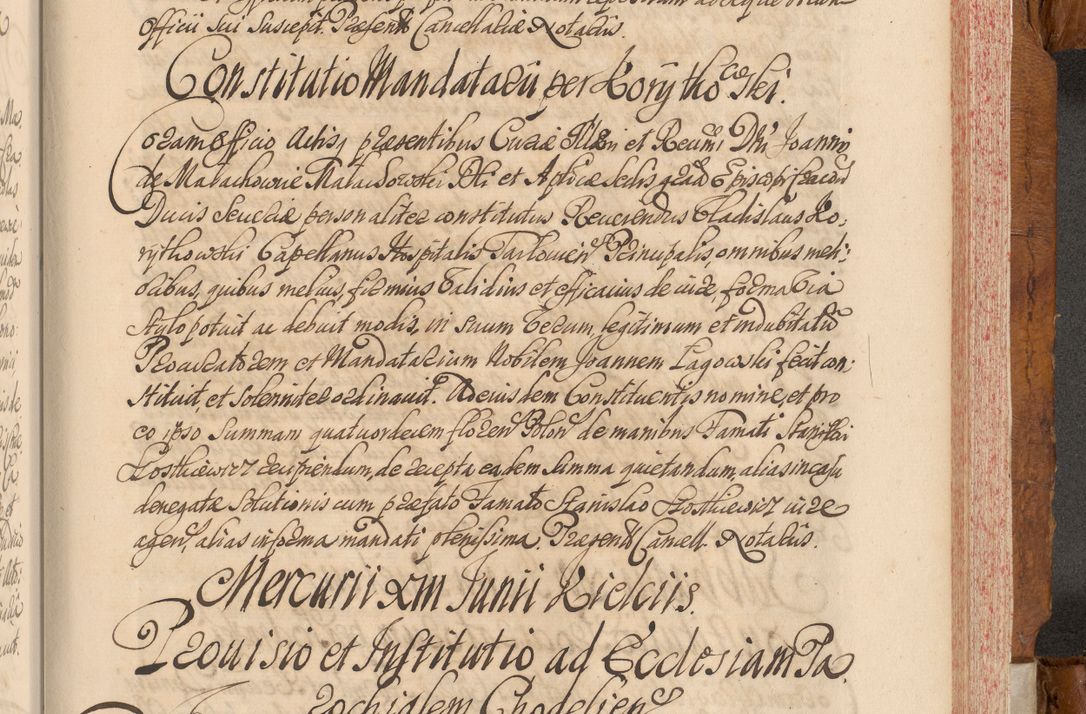 officii sui suscepit. Præsent Cancellariæ Notarius.
Constitutio Mandatarii per Korythowski.
Coram officio Actisq præsentibus Curiæ Illmi et Rxcumi Dni Joannis
de Malachowice Malachowski Dei et Aplicæ Sedis graā Episcopi Cracov
Ducis Severiæ personaliter constitutus Reverendus Vladislaus Ko,
rythowski Capellanus Hospitalis Tarlovien Principalis, omnibus meli:
oribus, quibus melius firmius validius et efficacius de iure, forma via
stylo potuit ac debuit modis, in suum verum, legitimum et indubitatū
Procuratorem et Mandatarium Nobilem Joannem Lagowski fecit con:
stituit, et solenniter ordinavit. Ad eiusdem Constituentis nomine, et pro
eo ipso summam quatuordecem floren Polon de manibus Famati Stanislai
Kosthiewicz recipiendum, de recepta eadem summa quietandum, alias in casu
denegatæ solutionis cum præfato Famato Stanislao Kosthiewicz iure
agen, alias in forma mandati plenissima. Præsent Cancell. Notarius.
Mercurii XIII Junii Kielciis.
Provisio et Institutio ad Ecclesiam Pa
rochialem Chodelien